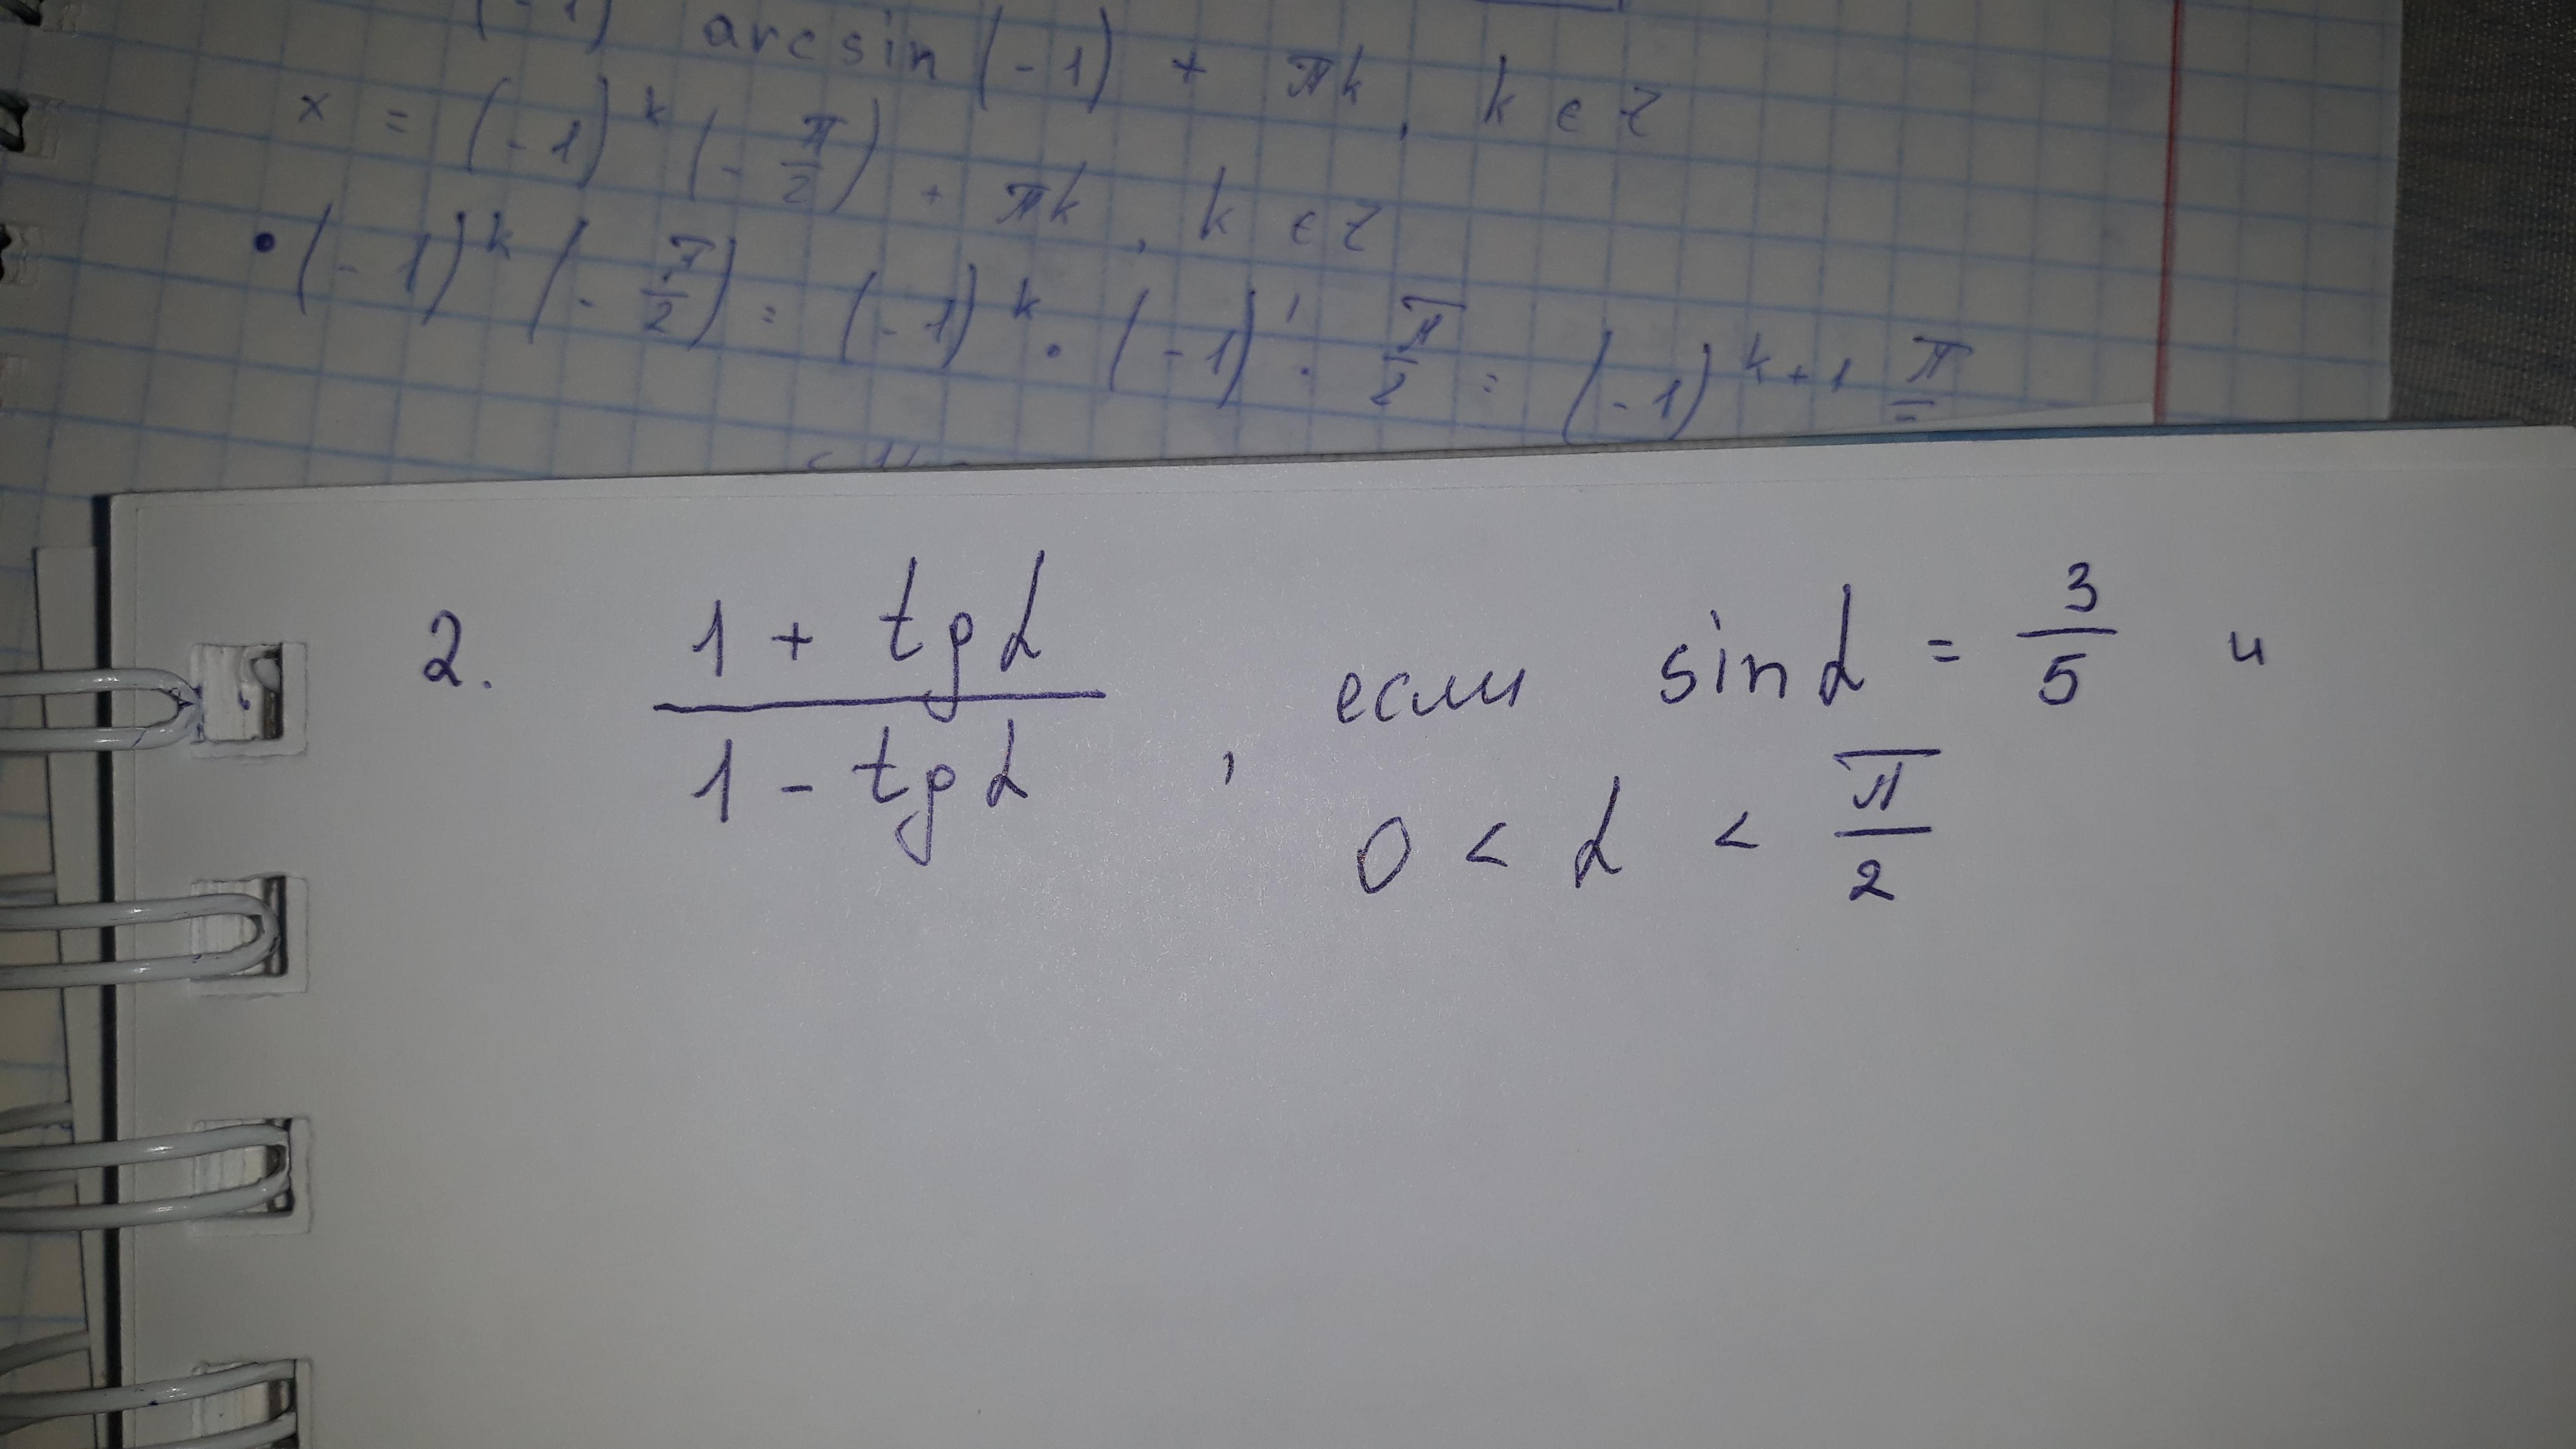 (-1) arcsin (-1) + πk, k ∈ Z
x = (-1)^k (-π/2) + πk, k ∈ Z
• (-1)^k (-π/2) = (-1)^k · (-1)^1 · π/2 = (-1)^(k+1) π
2. (1 + tg α)/(1 - tg α), если sin α = 3/5 и
0 < α < π/2